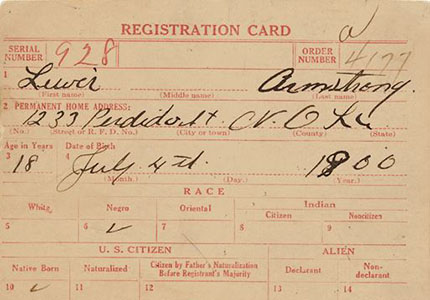 REGISTRATION CARD
SERIAL NUMBER 928 ORDER NUMBER 4177
1 Lewis Armstrong.
(First name) (Middle name) (Last name)
2 PERMANENT HOME ADDRESS:
1233 Perdido st N. O La
(No.) (Street or R. F. D. No.) (City or town) (County) (State)
Age in Years Date of Birth
3 18 4 July 4th. 1900
(Month.) (Day.) (Year.)
RACE
White Negro Oriental Indian
Citizen Noncitizen
5 6 ✓ 7 8 9
U. S. CITIZEN ALIEN
Native Born Naturalized Citizen by Father's Naturalization Before Registrant's Majority Declarant Non-declarant
10 ✓ 11 12 13 14